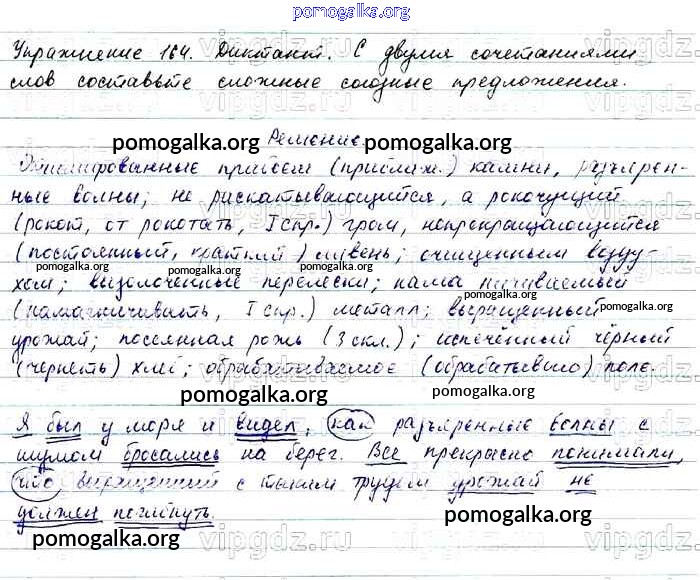 pomogalka.org
Упражнение 164. Диктант. С двумя сочетаниями
слов составьте сложные союзные предложения.
pomogalka.org Решение. pomogalka.org
Отшлифованные прибоем (прибляж.) камни, разъярен-
ные волны; не рискатывающийся, а рокочущий
(рокот, от рокотать, I спр.) гром, непрекращающийся
(постоянный, краткий) ливень; очищенным возду-
хом; вызолоченные перелески; намагничиваемый
(намагничивать, I спр.) металл; выращенный
урожай; посеянная рожь (3 скл.); испечённый чёрный
(чернеть) хлеб; обрабатываемое (обрабатывшо) поле.
pomogalka.org pomogalka.org
Я был у моря и видел, как разъяренные волны с
шумом бросались на берег. Все прекрасно понимали,
что выращенный с таким трудом урожай не
должен погибнуть.
pomogalka.org pomogalka.org
vipgdz.ru